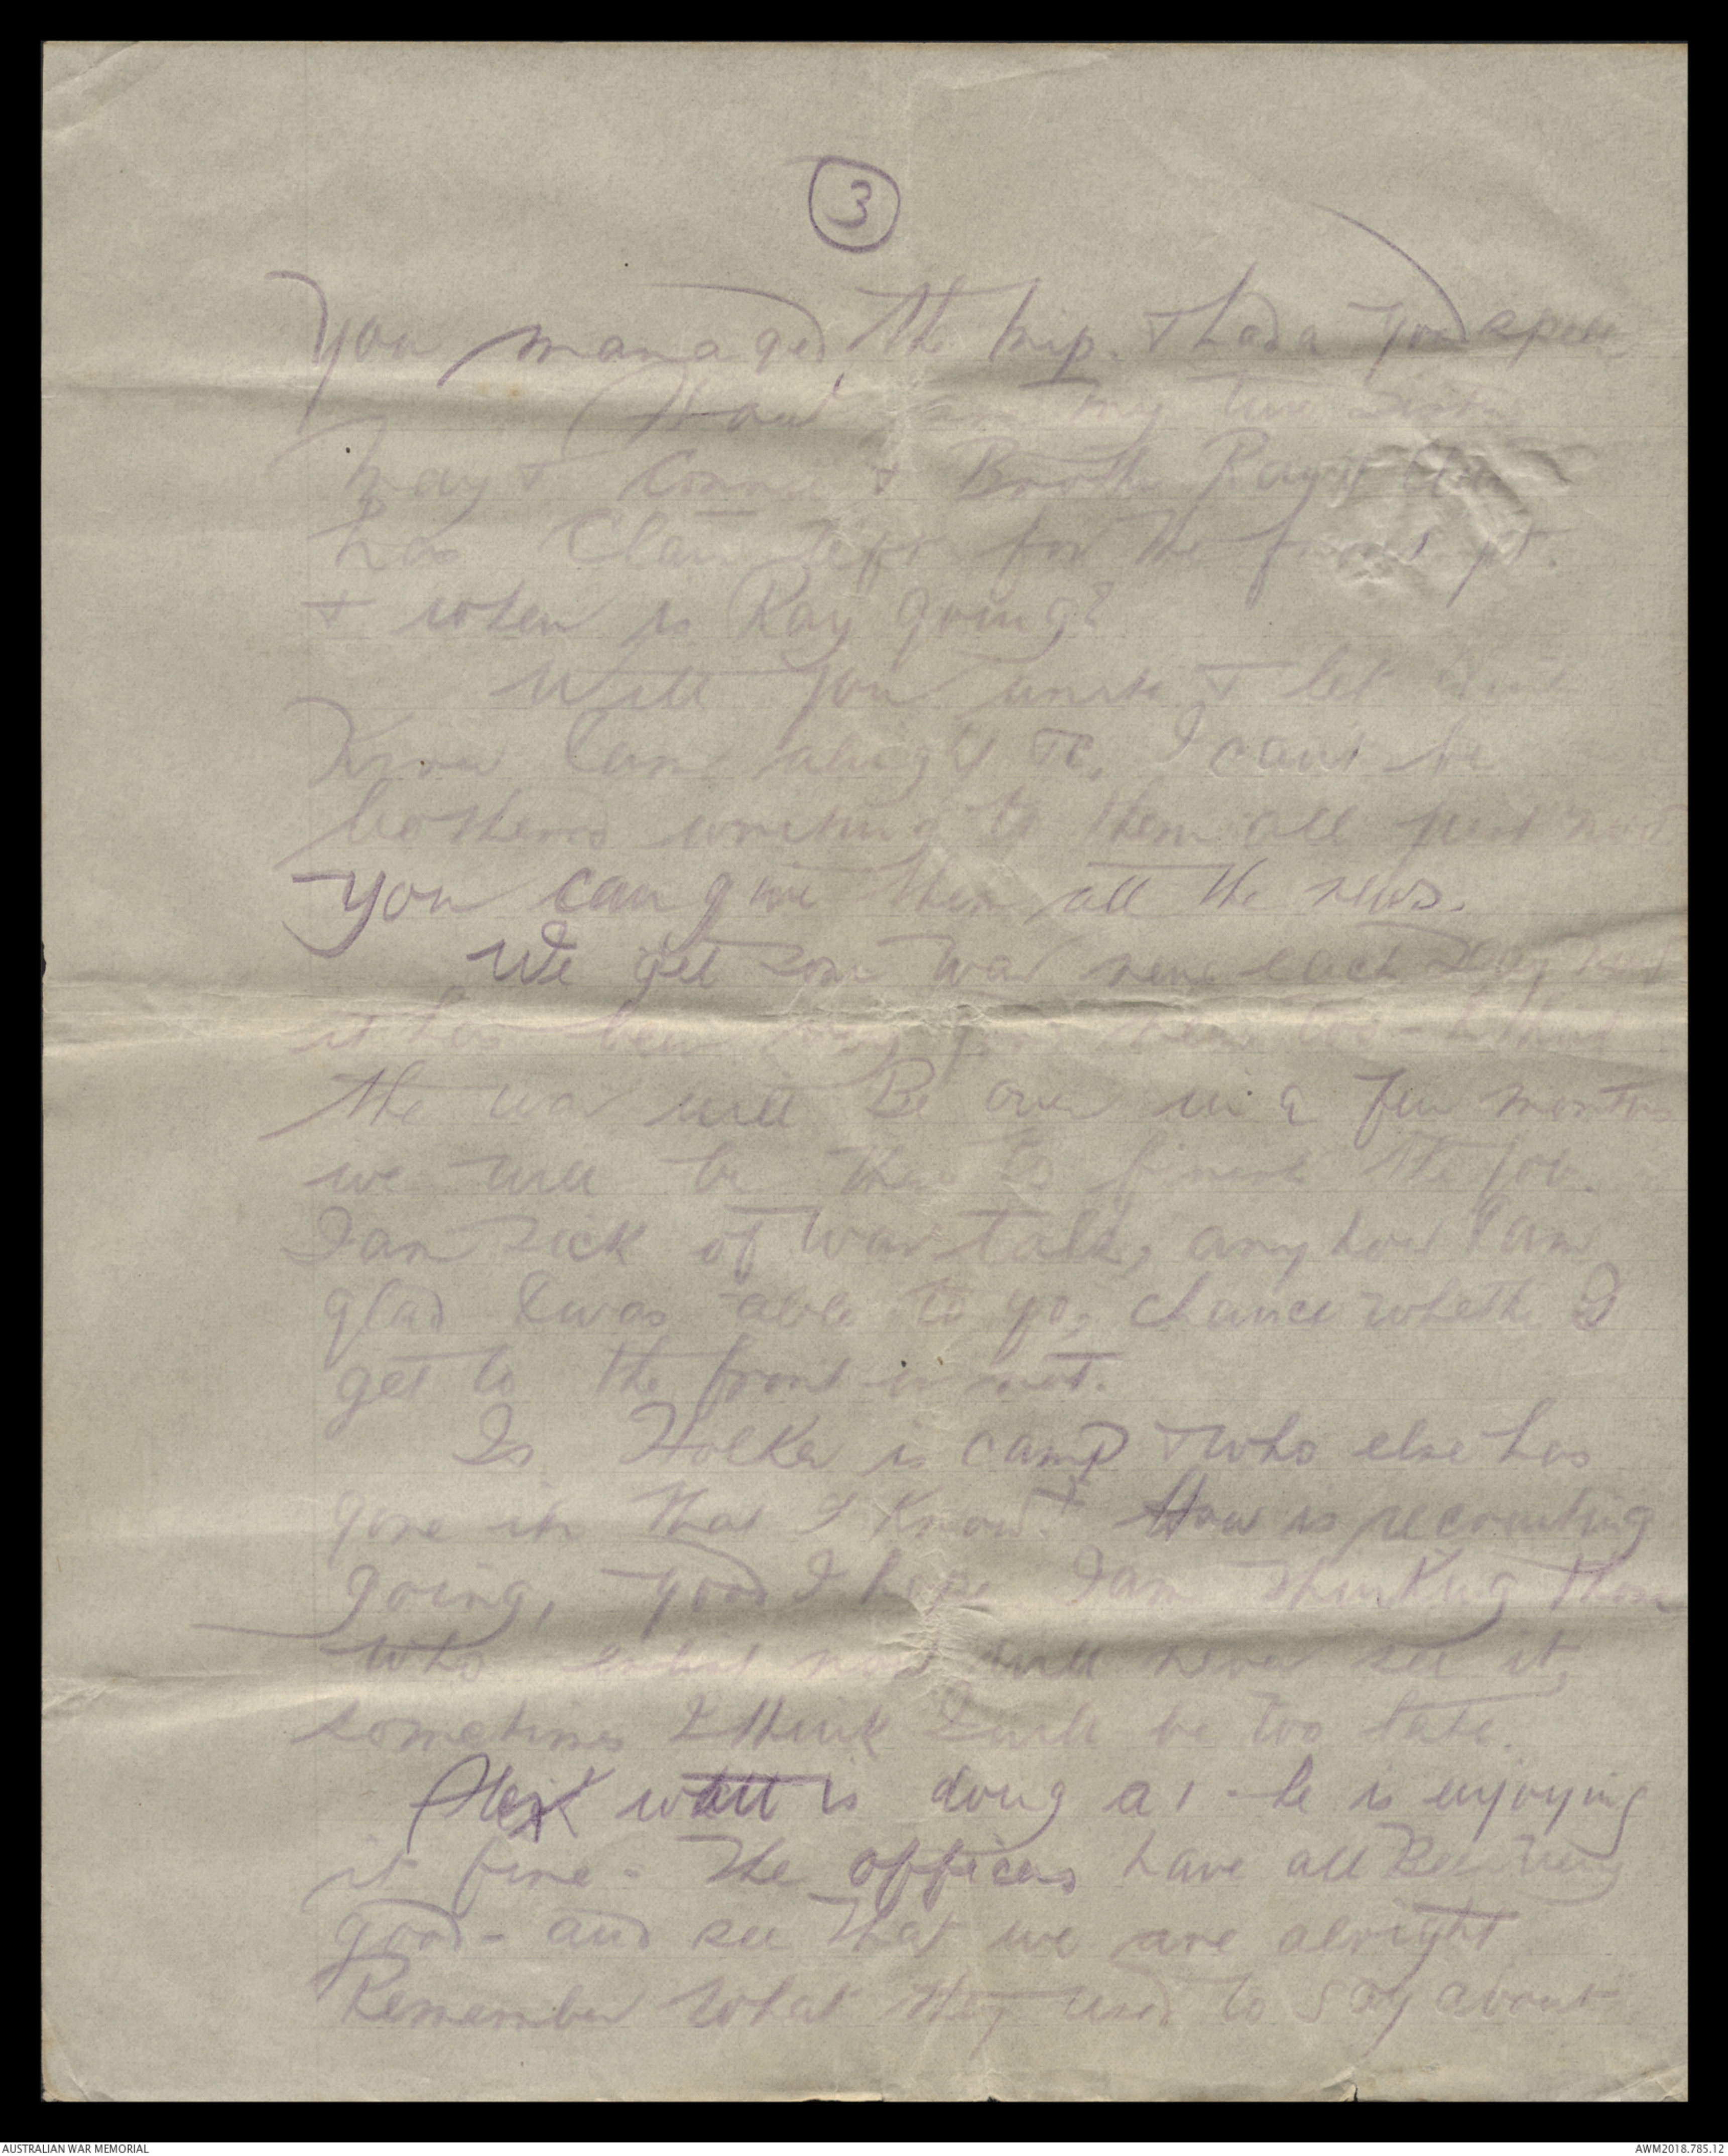 3
You managed the trip. & had a good spell
How are my two sisters
May & Connie & Brother Ray &
has Clair left for the front yet.
& when is Ray going?
Will you write & let
Know I am alright etc, I cant be
bothered writing to them all just now
You can give them all the news.
We get some war news each day and
it has been very good news too - I think
the war will Be over in a few months
we will be there to finish the job.
I am sick of war talk, anyhow I am
glad I was able to go, chance whether I
get to the front or not.
Is Holker in camp & who else has
gone in that I know? How is recruiting
going, good I hope I am thinking those
who enlist now will never see it,
sometimes I think I will be too late.
Alex watt is doing a 1 - he is enjoying
it fine - The officers have all Been very
good - and see that we are alright
Remember what they used to say about
AUSTRALIAN WAR MEMORIAL
AWM2018.785.12